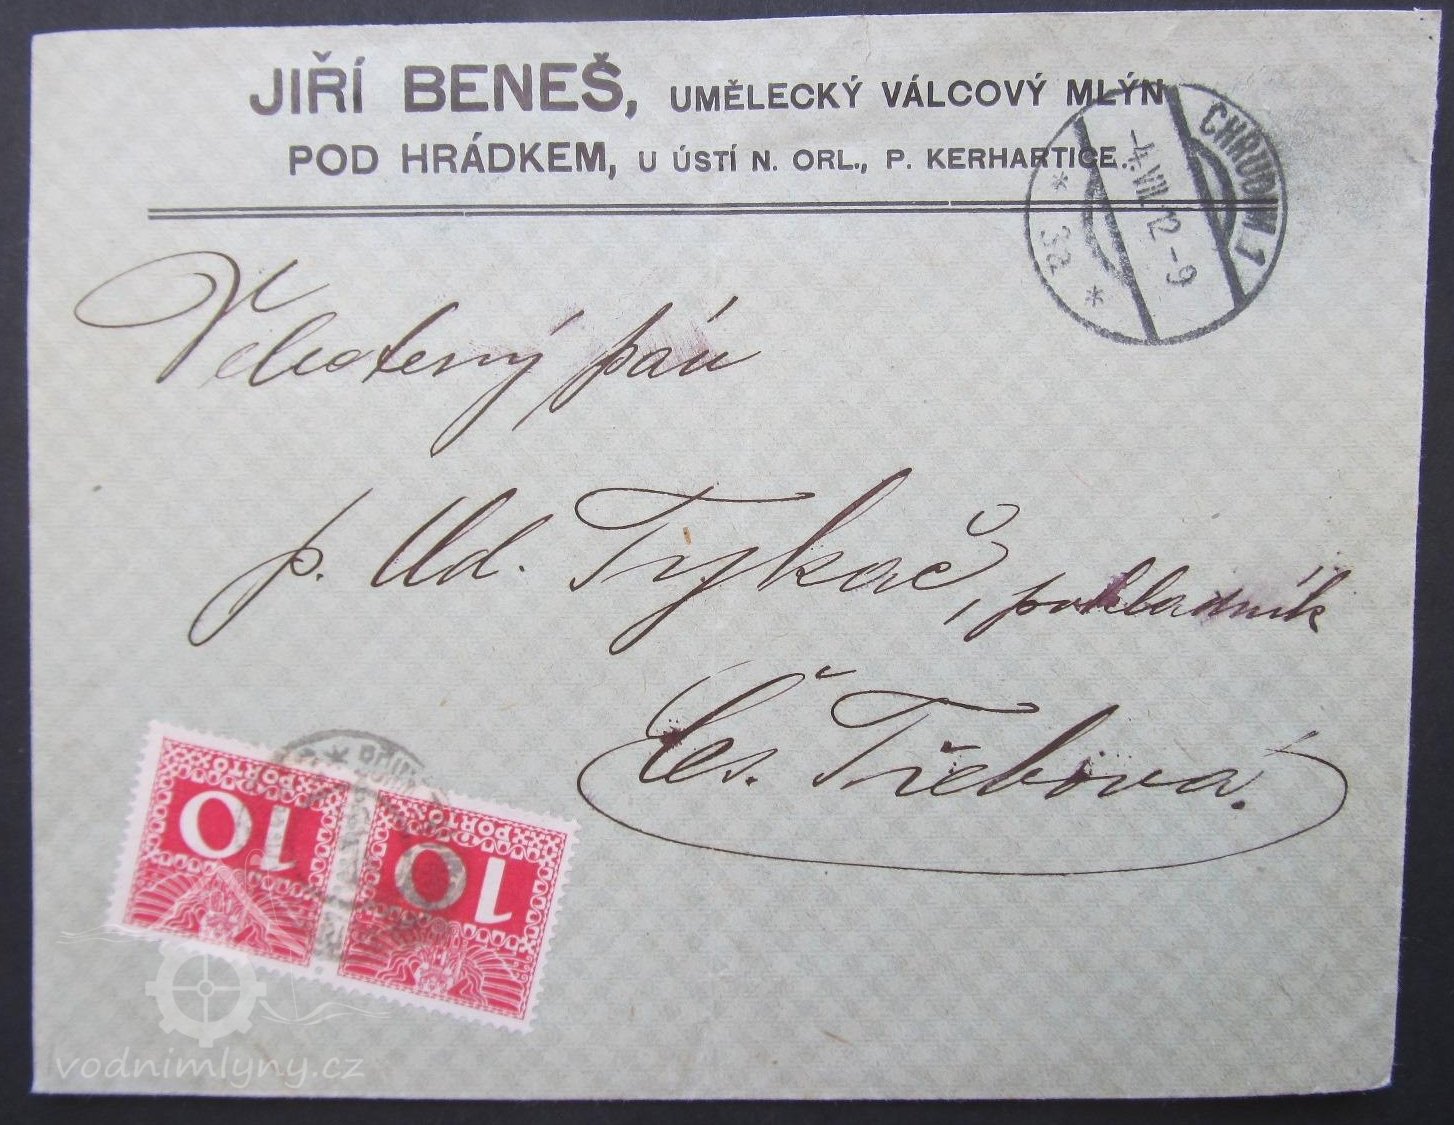 JIŘÍ BENEŠ, UMĚLECKÝ VÁLCOVÝ MLÝN
POD HRÁDKEM, U ÚSTÍ N. ORL., P. KERHARTICE.
CHRUDIM 1
-4.VII.12-9
* 3a *
Velectený pán
p. Ud. Tykač, pokladník
Čes. Třebová.
PORTO
10
PORTO
10
vodnimlyny.cz